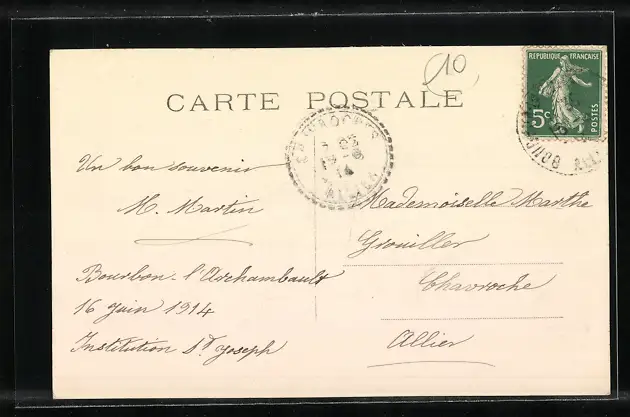 10
CARTE POSTALE
REPUBLIQUE FRANÇAISE
5c
POSTES
14
Un bon souvenir
M. Martin
Bourbon-l'Archambault
16 juin 1914
Institution St Joseph
Mademoiselle Marthe
Grouiller
Chavroche
Allier